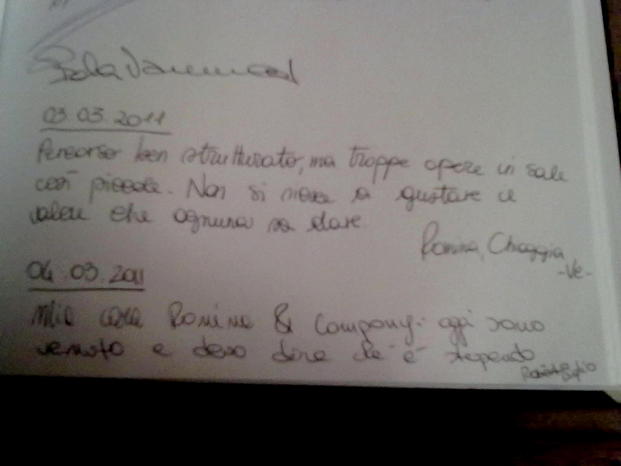 03.03.2011
Percorso ben strutturato, ma troppe opere in sale
così piccole. Non si riesce a gustare il
valore che ognuna sa dare.
Romina, Chioggia
-Ve-
04.03.2011
Mia cara Romina & Company: oggi sono
venuto e devo dire che è stupendo